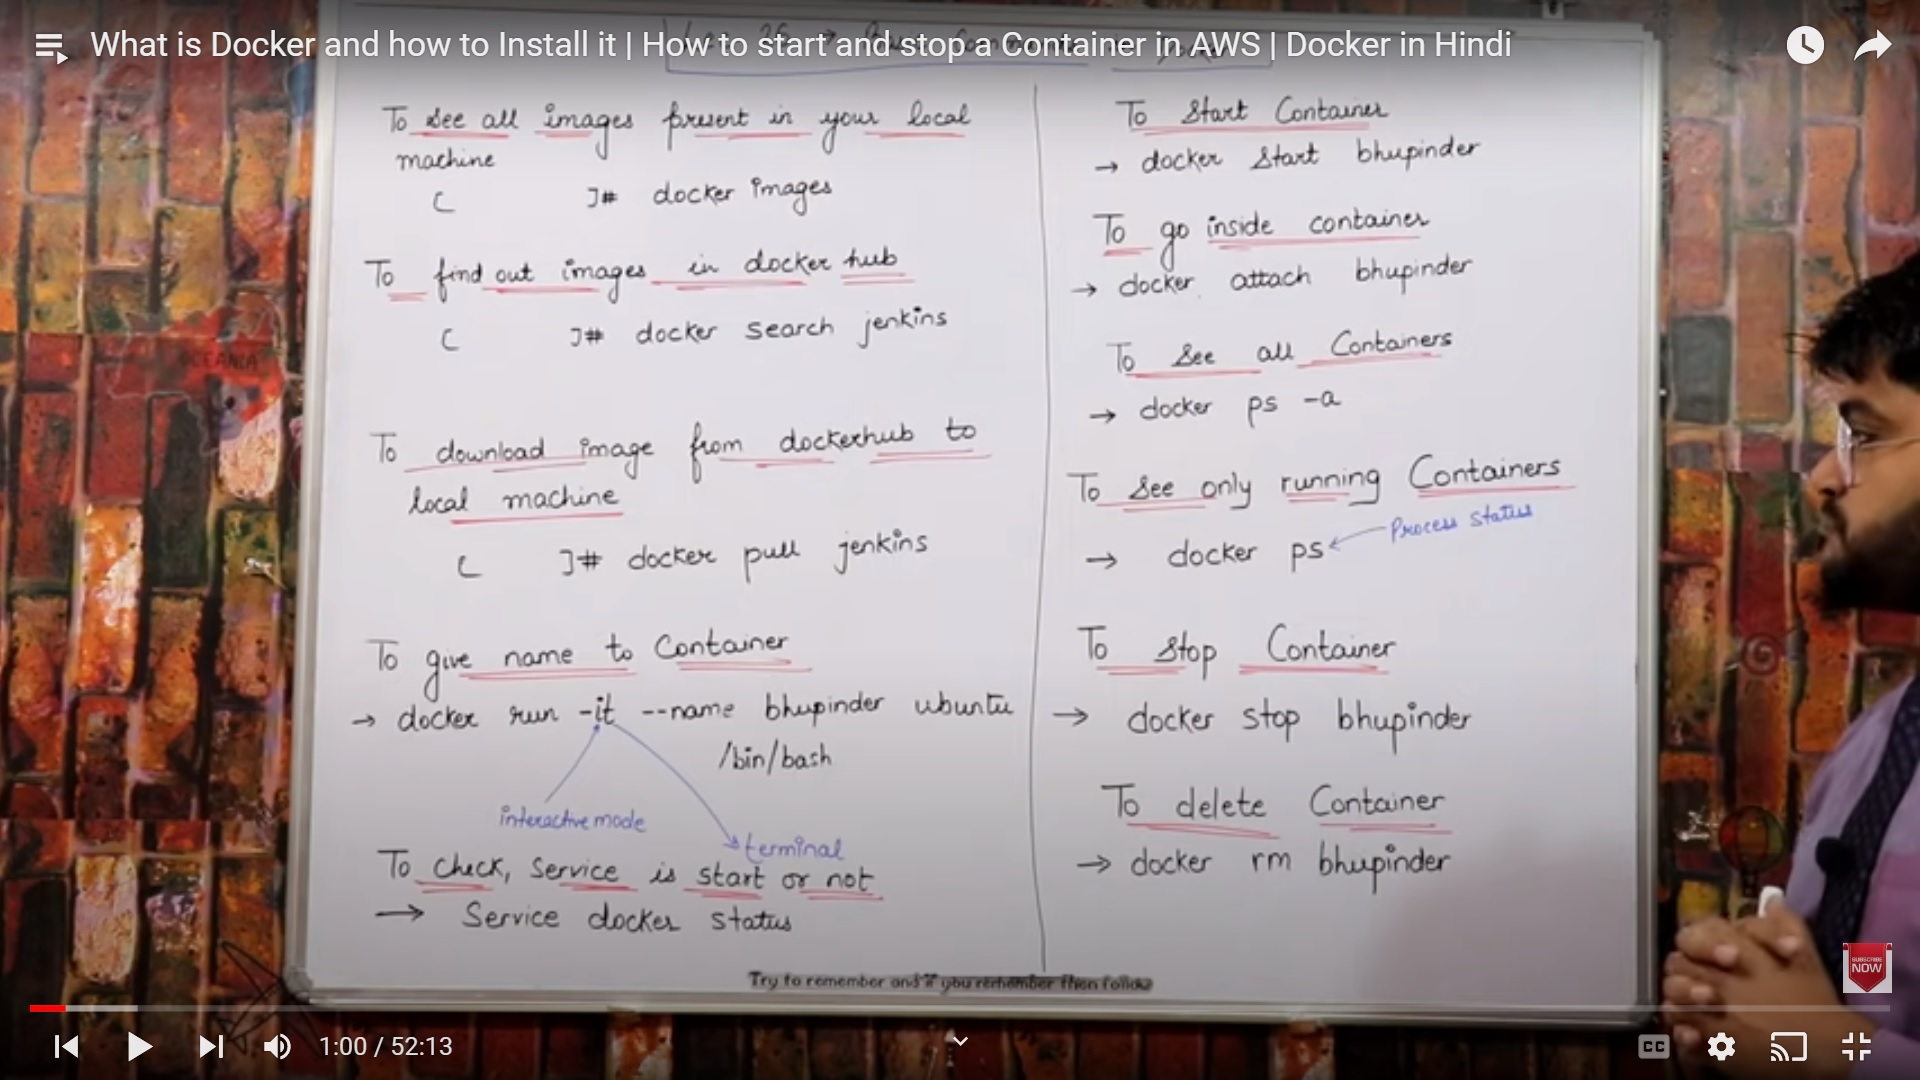 What is Docker and how to Install it | How to start and stop a Container in AWS | Docker in Hindi
To see all images present in your local
machine
[ ]# docker images
To find out images in docker hub
[ ]# docker search jenkins
To download image from dockerhub to
local machine
[ ]# docker pull jenkins
To give name to Container
→ docker run -it --name bhupinder ubuntu
/bin/bash
interactive mode
terminal
To check, service is start or not
→ Service docker status
To Start Container
→ docker start bhupinder
To go inside container
→ docker attach bhupinder
To see all Containers
→ docker ps -a
To see only running Containers
Process status
→ docker ps
To stop Container
→ docker stop bhupinder
To delete Container
→ docker rm bhupinder
OCEANIA
Try to remember and if you remember then follow
SUBSCRIBE
NOW
1:00 / 52:13
CC